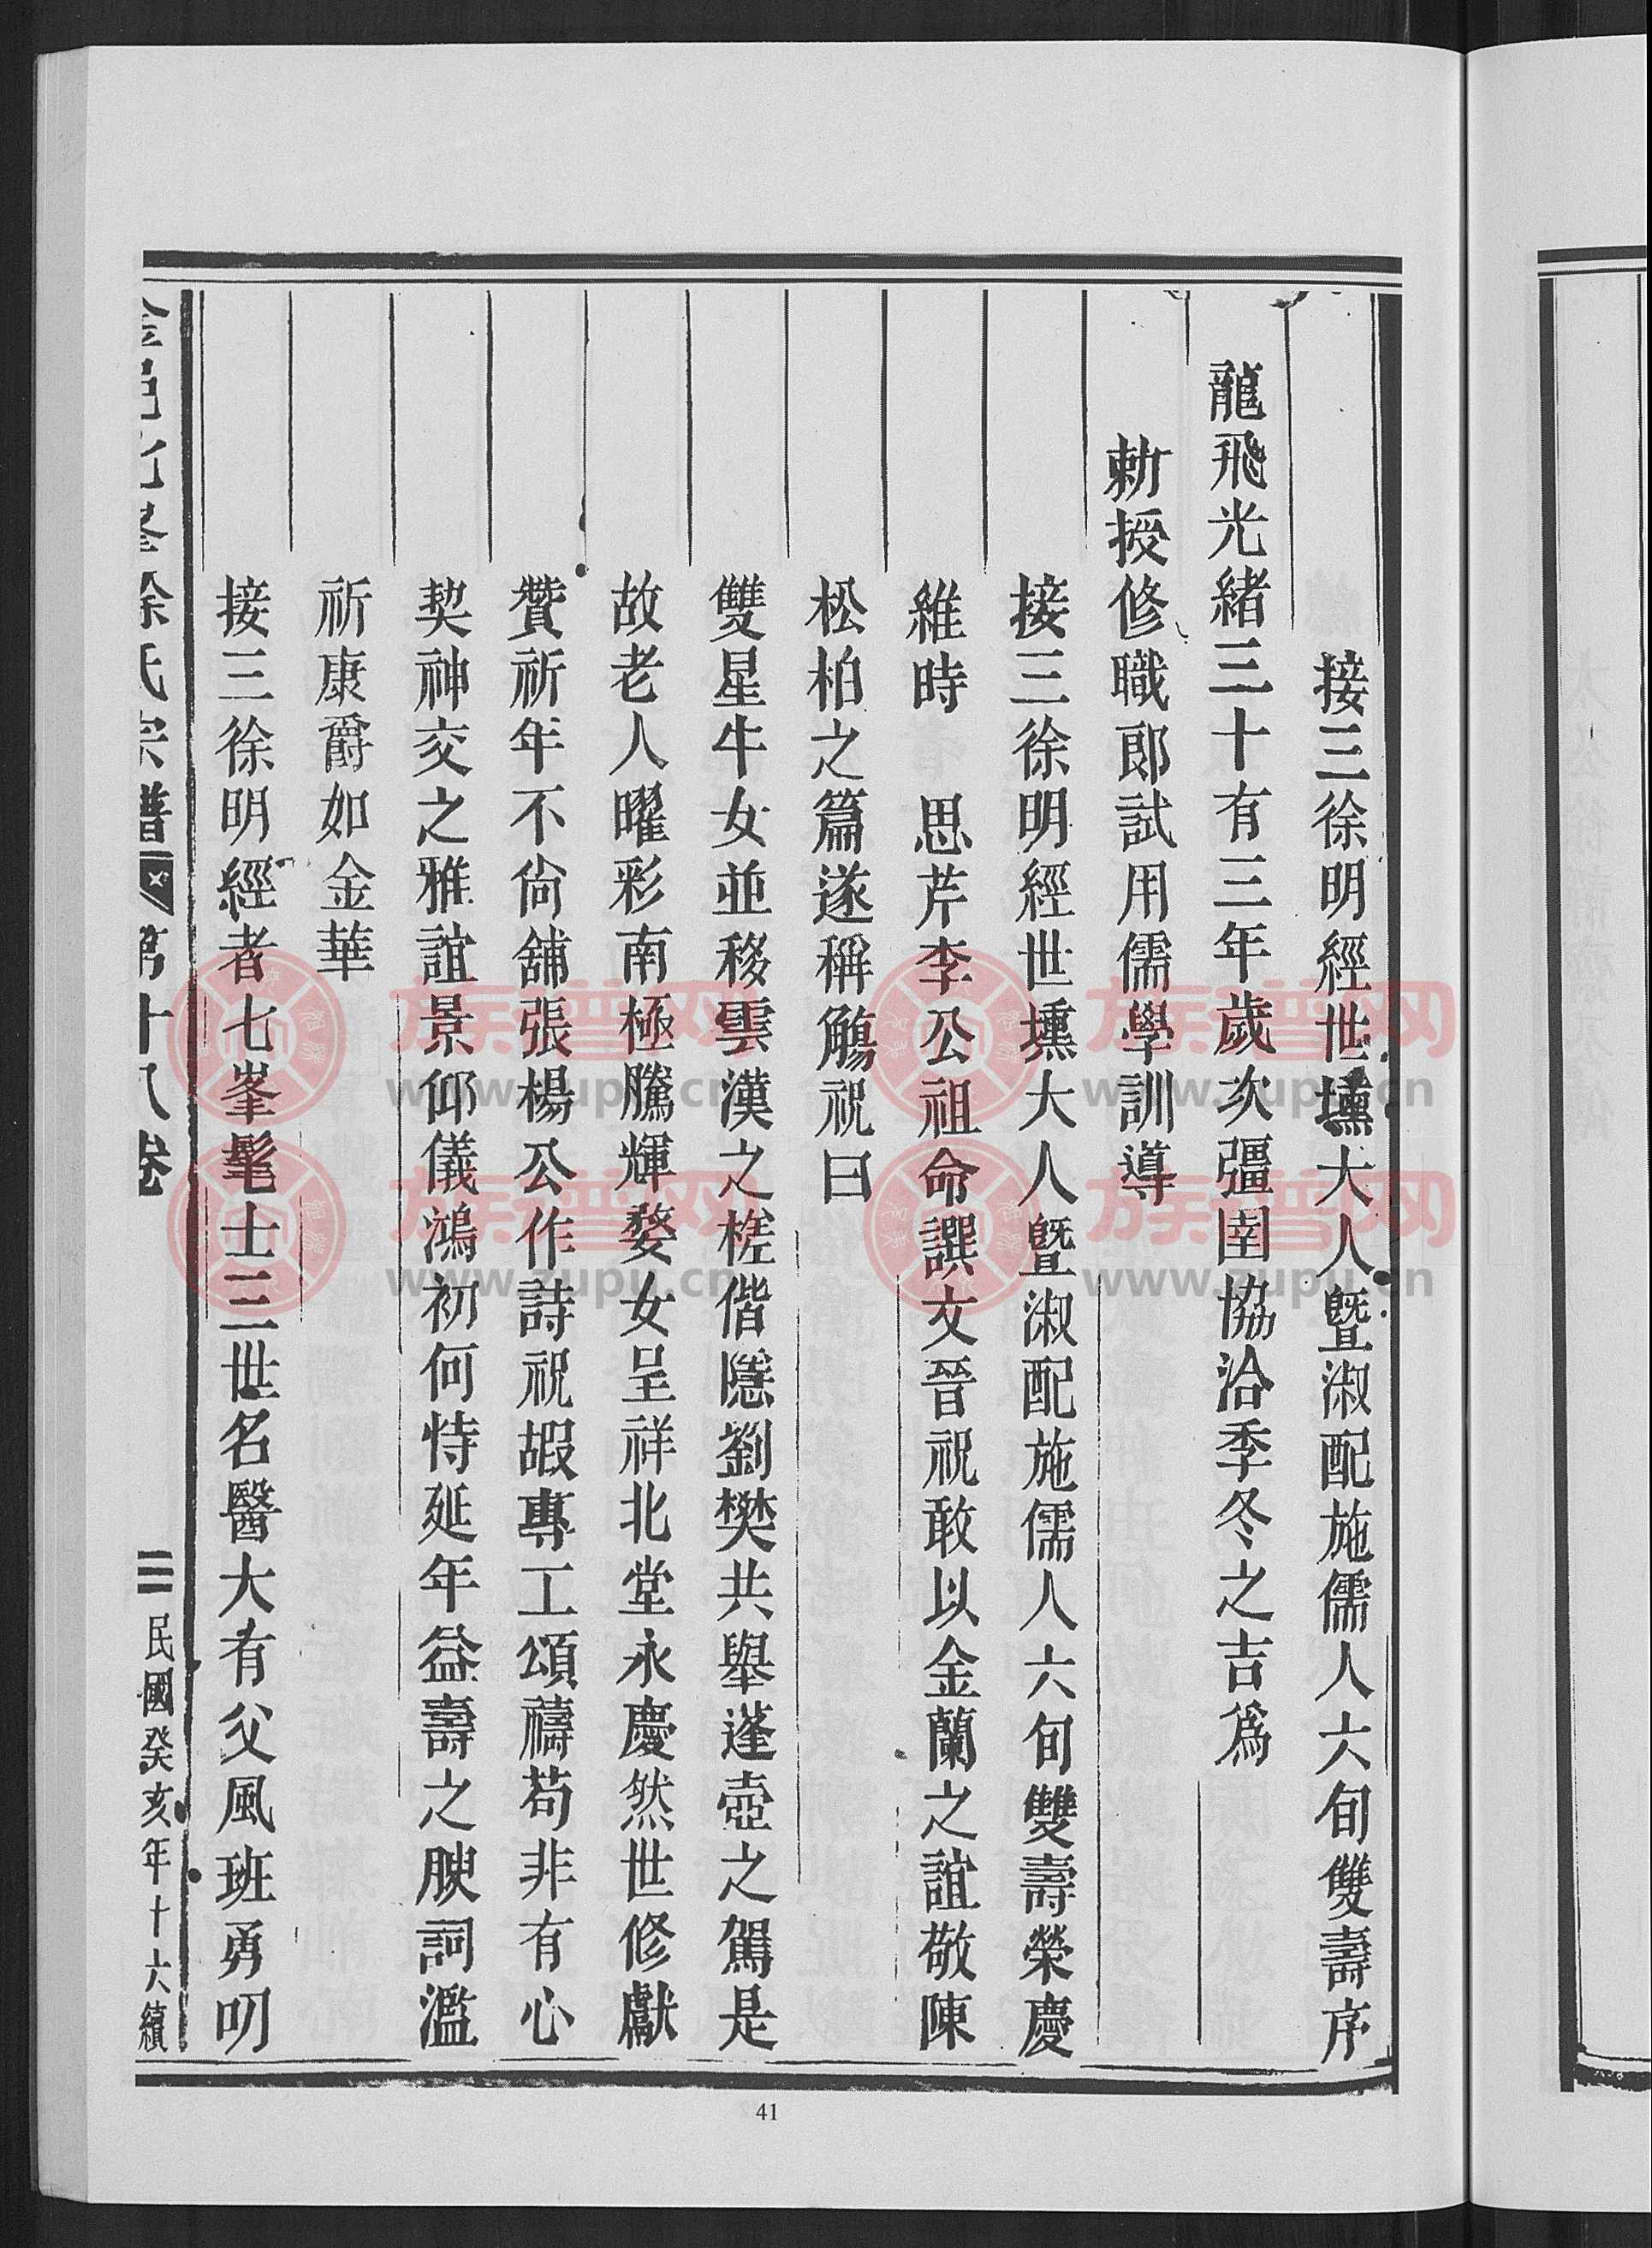 接三徐明經世壎大人暨淑配施儒人六旬雙壽序
龍飛光緒三十有三年歲次彊圉協洽季冬之吉爲
勅授修職郎試用儒學訓導
接三徐明經世壎大人暨淑配施儒人六旬雙壽榮慶
維時　思芹李公祖命譔文晉祝敢以金蘭之誼敬陳
松柏之篇遂稱觴祝曰
雙星牛女並移雲漢之槎偕隱劉樊共舉蓬壺之駕是
故老人曜彩南極騰輝婺女呈祥北堂永慶然世修獻
贊祈年不尙舖張楊公作詩祝嘏專工頌禱苟非有心
契神交之雅誼景仰儀鴻初何恃延年益壽之腴詞濫
祈康爵如金華
接三徐明經者七峯髦士三世名醫大有父風班勇叨
徐氏宗譜
第十八卷
二
民國癸亥年十六續
41
族譜网
www.zupu.cn
族譜网
www.zupu.cn
族譜网
www.zupu.cn
族譜网
www.zupu.cn